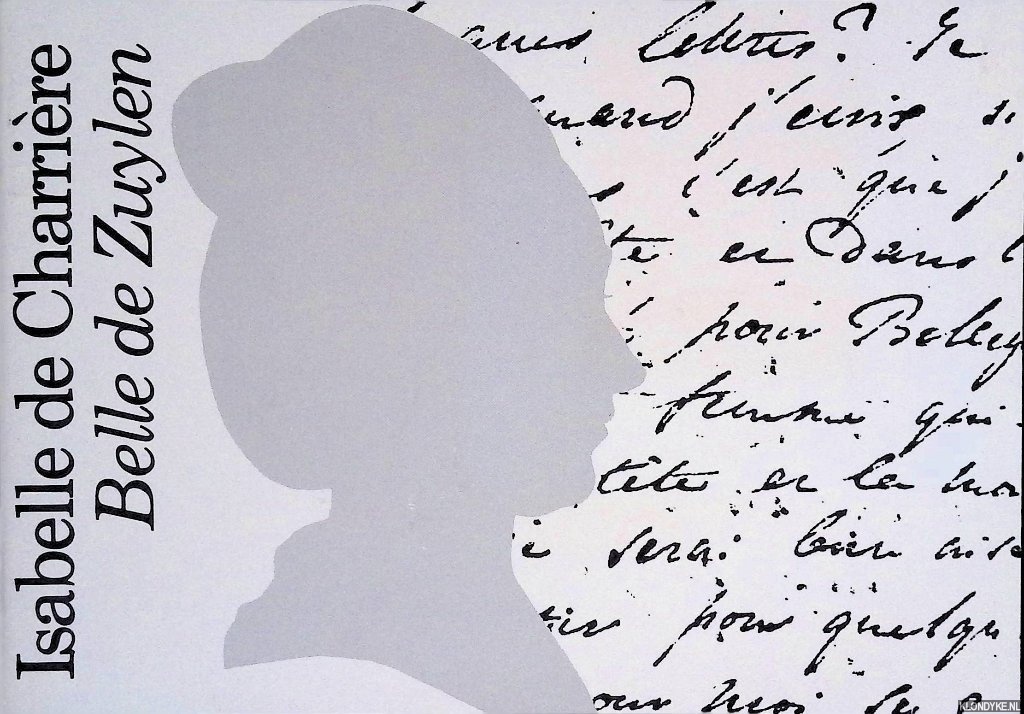 Isabelle de Charrière
Belle de Zuylen
lettres? Je
quand j'ecris
c'est que j
et dans l
pour
femme qui
tête et la
serai bien aise
pour quelqu
pour moi
KLONDYKE.NL